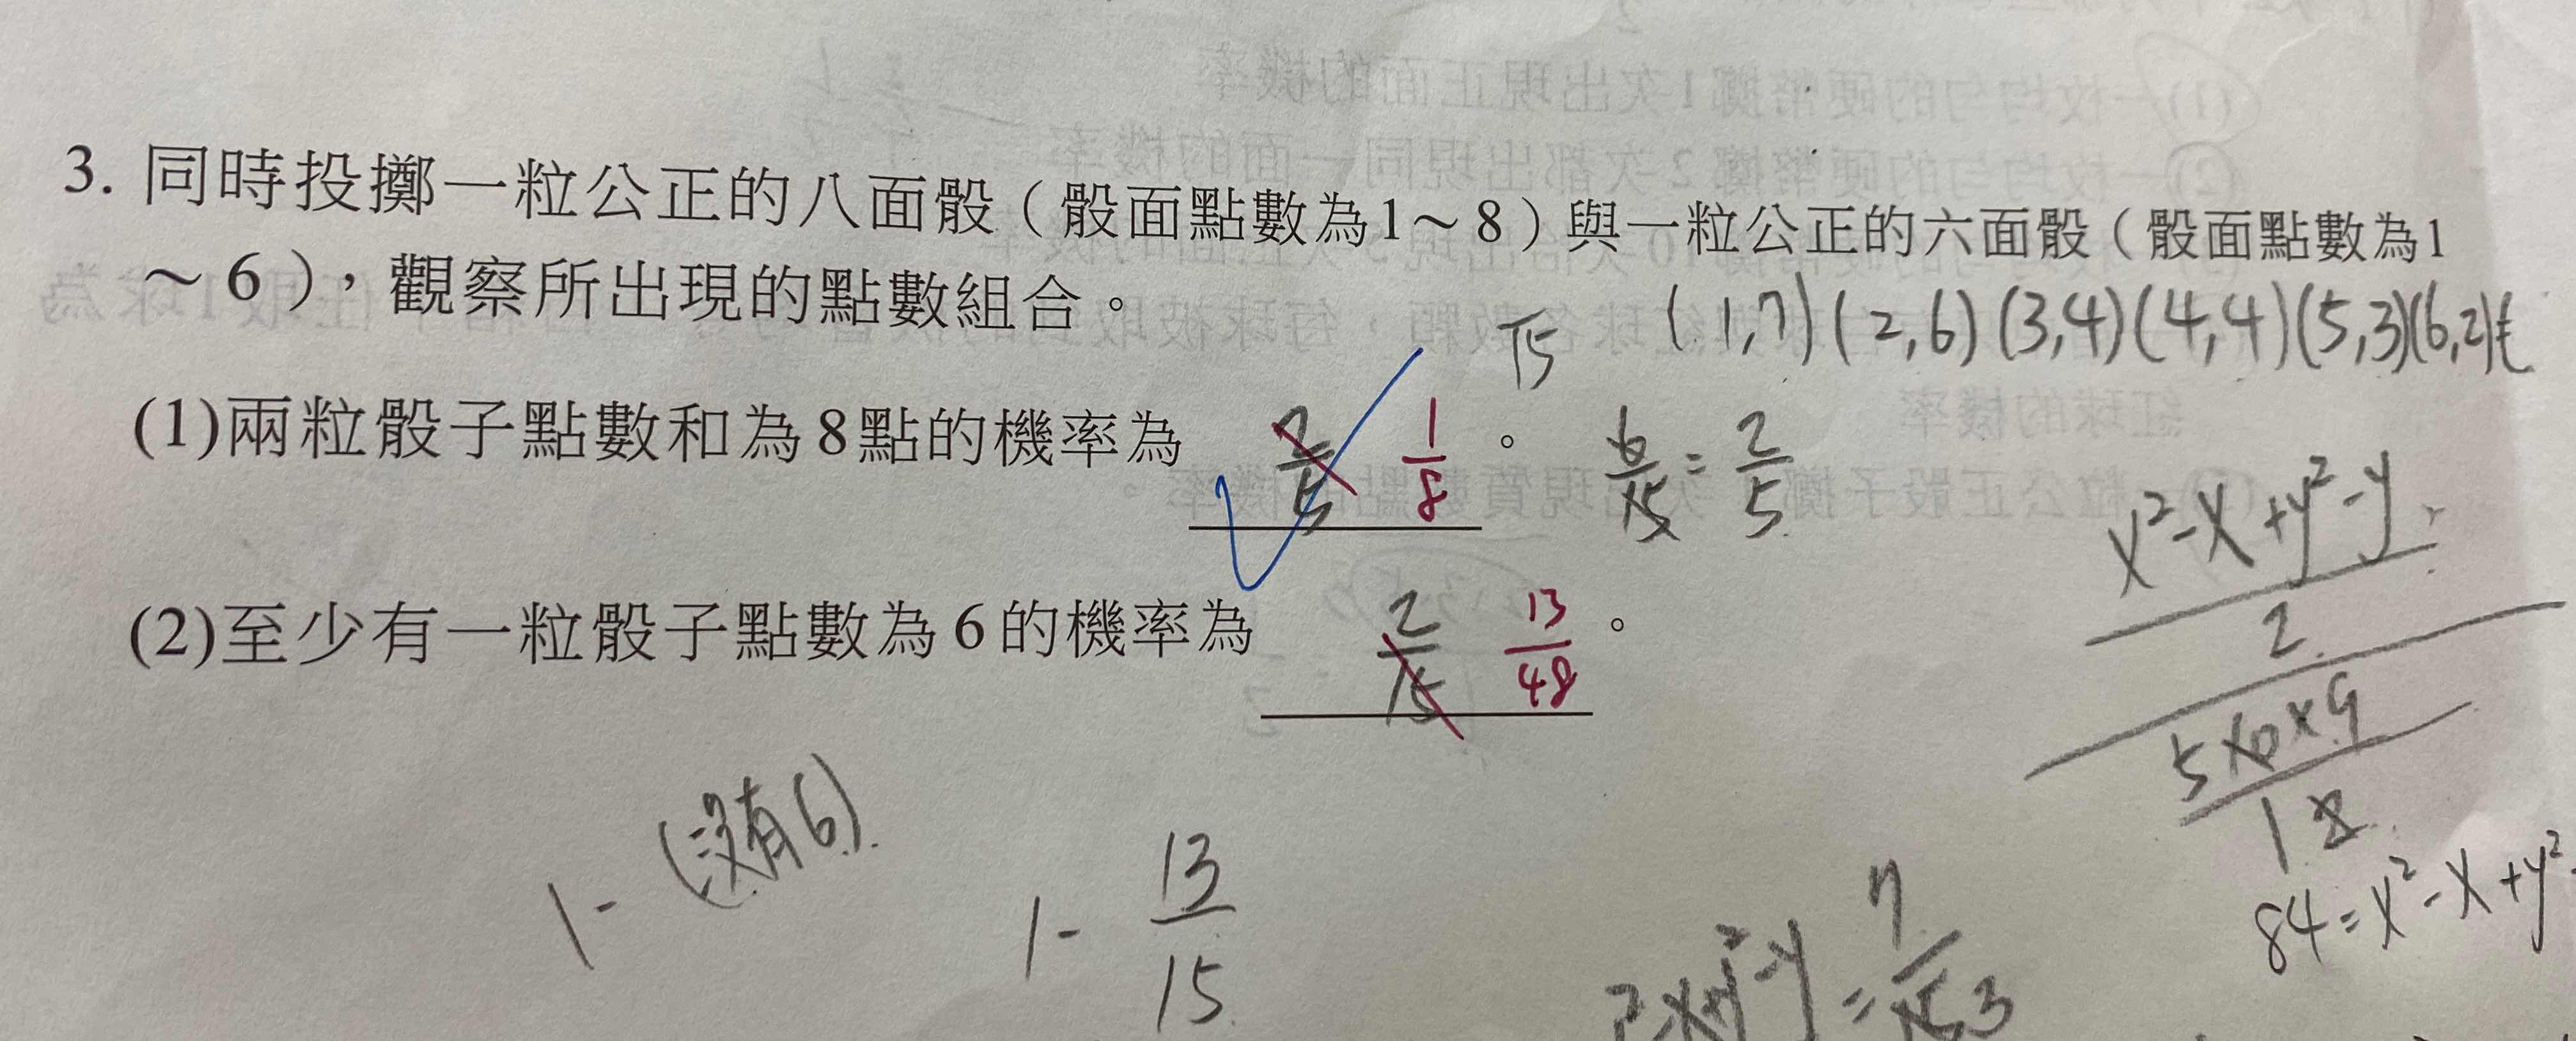 3. 同時投擲一粒公正的八面骰（骰面點數為1～8）與一粒公正的六面骰（骰面點數為1
～6），觀察所出現的點數組合。
(1,7)(2,6)(3,4)(4,4)(5,3)(6,2)
15
(1)兩粒骰子點數和為8點的機率為 2/5 1/8 。 6/15 = 2/5
(2)至少有一粒骰子點數為6的機率為 2/15 13/48 。
x²-x+y²-y
2
1-(沒有6)
1- 13/15
84=x²-x+y²